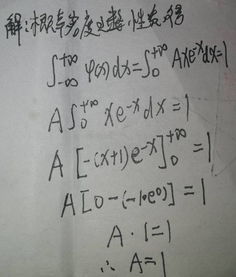 解:概率密度完整性知
∫_{-∞}^{+∞} φ(x) dx = ∫_0^{+∞} Axe^{-x}dx=1
A∫_0^{+∞} xe^{-x}dx=1
A[-(x+1)e^{-x}]_0^{+∞}=1
A[0-(-1·e^0)]=1
A·1=1
∴ A=1